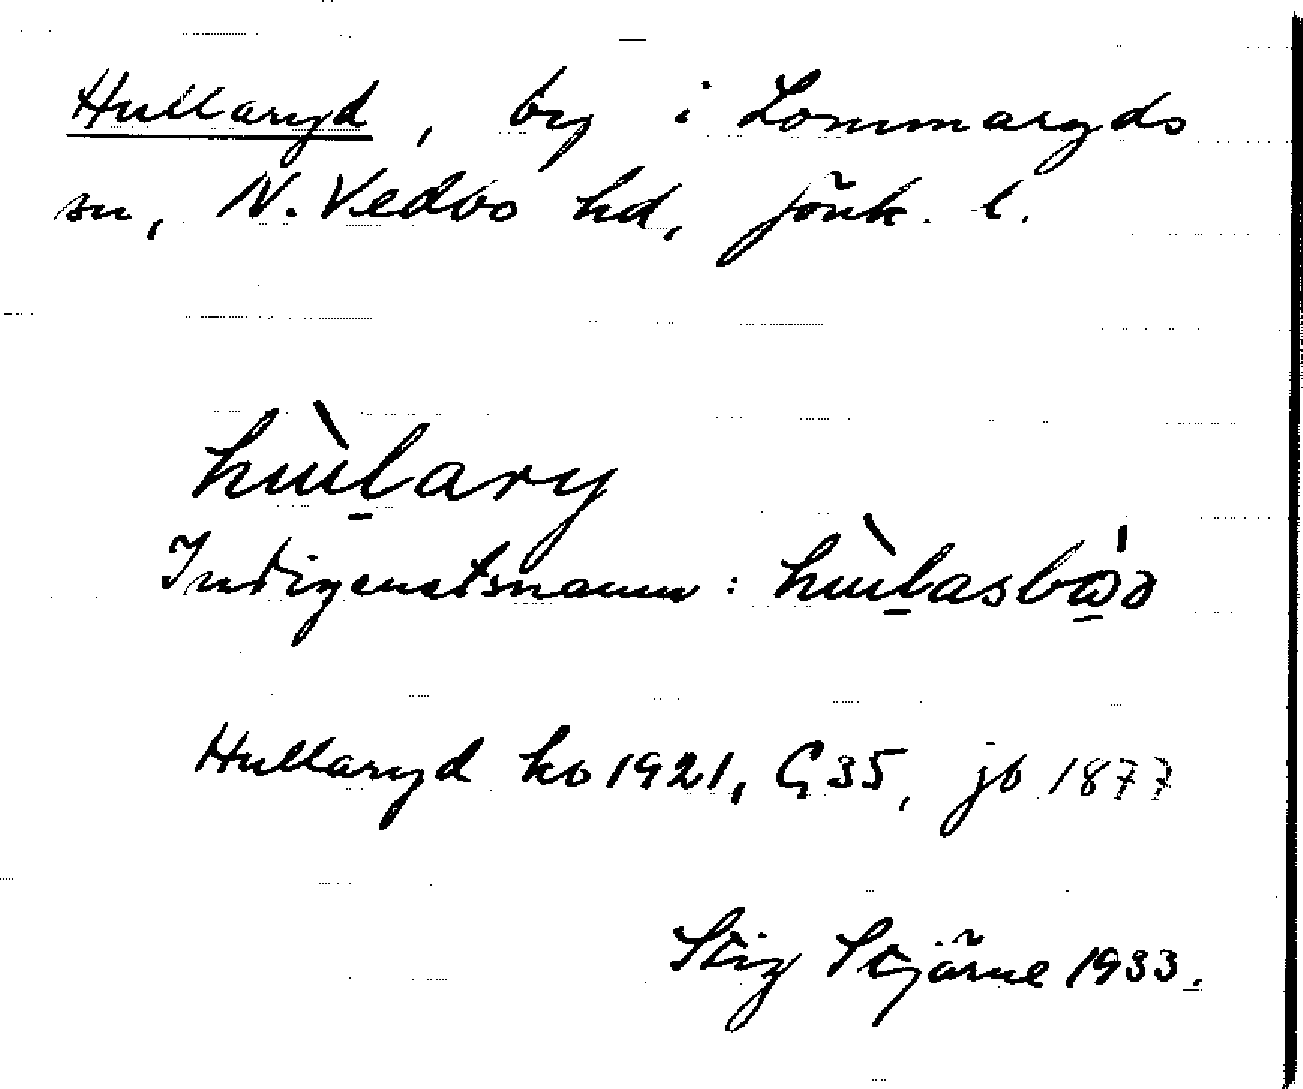 Hullaryd, by i Lommaryds
sn, N. Vedbo hd, Jönk. l.
hùlary
Indigenatsnamn: hùlasbo
Hullaryd ko 1921, G 35, jb 1877
Stig Stjärne 1933.